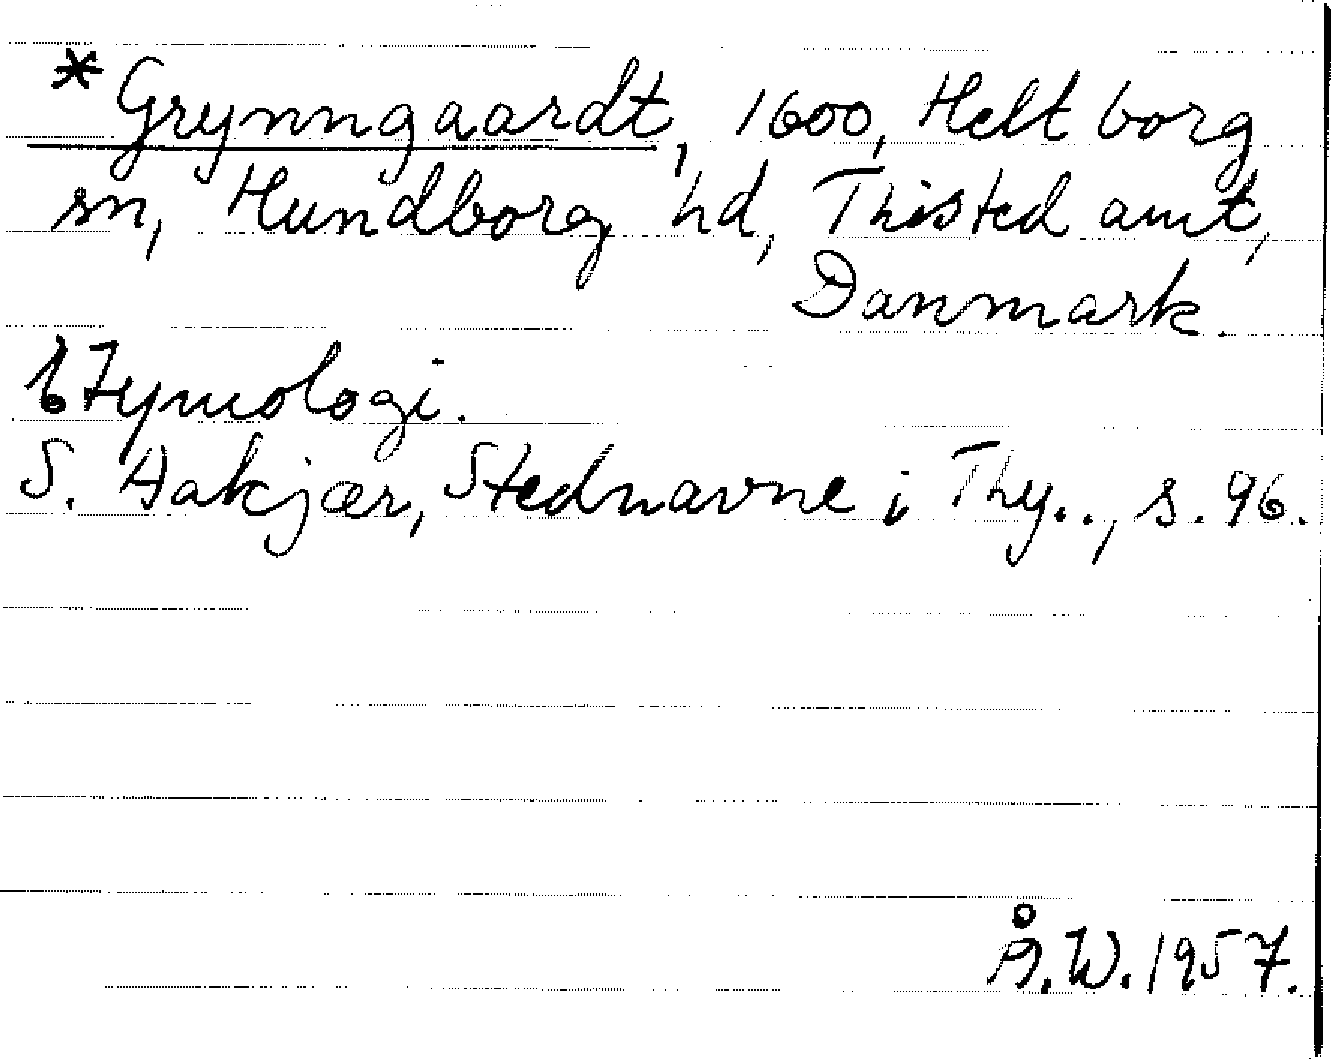 * Grynngaardt, 1600, Heltborg
sn, Hundborg hd, Thisted amt,
Danmark.
Etymologi.
S. Aakjær, Stednavne i Thy.., s. 96.
Å.W. 1957.